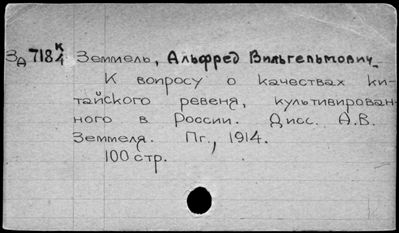 ЗА 718 К/4 Земмель, Альфред Вильгельмович
К вопросу о качествах ки-
тайского ревеня, культивирован-
ного в России. Дисс. А.В.
Земмеля. Пг., 1914.
100 стр.